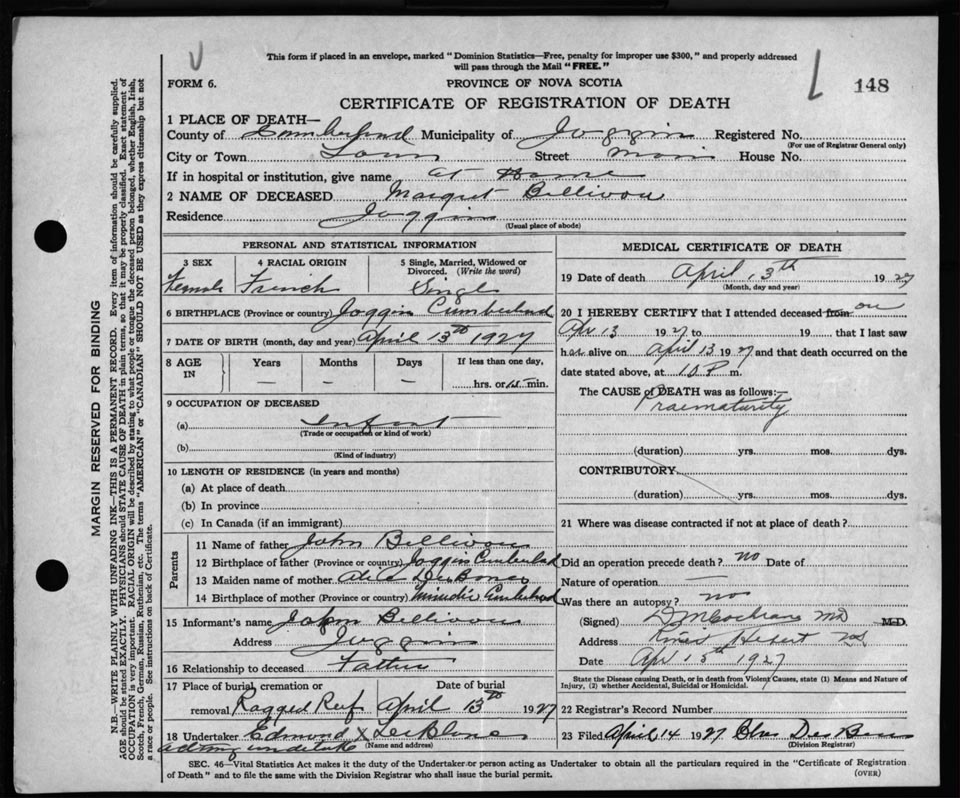 This form if placed in an envelope, marked "Dominion Statistics—Free, penalty for improper use $300," and properly addressed
will pass through the Mail "FREE."
FORM 6.
PROVINCE OF NOVA SCOTIA
148
CERTIFICATE OF REGISTRATION OF DEATH
1 PLACE OF DEATH—
County of Cumberland Municipality of Joggin Registered No.
(For use of Registrar General only)
City or Town Town Street Main House No.
If in hospital or institution, give name at Home
2 NAME OF DECEASED Margret Bellivou
Residence Joggin
(Usual place of abode)
PERSONAL AND STATISTICAL INFORMATION
3 SEX 4 RACIAL ORIGIN 5 Single, Married, Widowed or Divorced. (Write the word)
Female French Single
6 BIRTHPLACE (Province or country) Joggin Cumberland
7 DATE OF BIRTH (month, day and year) April 13th 1927
8 AGE IN Years Months Days If less than one day,
— — — hrs. or 15 min.
9 OCCUPATION OF DECEASED
(a) Infant
(Trade or occupation or kind of work)
(b)
(Kind of industry)
10 LENGTH OF RESIDENCE (in years and months)
(a) At place of death
(b) In province
(c) In Canada (if an immigrant)
Parents
11 Name of father John Bellivou
12 Birthplace of father (Province or country) Joggin Cumberland
13 Maiden name of mother
14 Birthplace of mother (Province or country) Minudie Cumberland
15 Informant's name John Bellivou
Address Joggin
16 Relationship to deceased Father
17 Place of burial, cremation or removal Ragged Reef Date of burial April 13th 1927
18 Undertaker Edmond X LeBlanc
(Name and address)
acting undertake
MEDICAL CERTIFICATE OF DEATH
19 Date of death April 13th 1927
(Month, day and year)
20 I HEREBY CERTIFY that I attended deceased from on
Apr 13 1927 to 19 that I last saw
her alive on April 13 1927 and that death occurred on the
date stated above, at 10 P m.
The CAUSE of DEATH was as follows:—
Praematurity
(duration) yrs. mos. dys.
CONTRIBUTORY
(duration) yrs. mos. dys.
21 Where was disease contracted if not at place of death?
Did an operation precede death? no Date of
Nature of operation —
Was there an autopsy? no
(Signed) D M Cochrane MD M.D.
Address River Hebert NS
Date Apr 13th 1927
State the Disease causing Death, or in death from Violent Causes, state (1) Means and Nature of
Injury, (2) whether Accidental, Suicidal or Homicidal.
22 Registrar's Record Number
23 Filed April 14 1927 Chas
(Division Registrar)
SEC. 46—Vital Statistics Act makes it the duty of the Undertaker or person acting as Undertaker to obtain all the particulars required in the "Certificate of Registration
of Death" and to file the same with the Division Registrar who shall issue the burial permit.
(OVER)
MARGIN RESERVED FOR BINDING
N.B.—WRITE PLAINLY WITH UNFADING INK—THIS IS A PERMANENT RECORD. Every item of information should be carefully supplied.
AGE should be stated EXACTLY. PHYSICIANS should STATE CAUSE OF DEATH in plain terms, so that it may be properly classified. Exact statement of
OCCUPATION is very important. RACIAL ORIGIN will be described by stating to what people or tongue the deceased person belonged, whether English, Irish,
Scotch, French, German, Russian, Ruthenian, etc. The terms "AMERICAN" or "CANADIAN" SHOULD NOT BE USED as they express citizenship but not
a race or people. See instructions on back of Certificate.